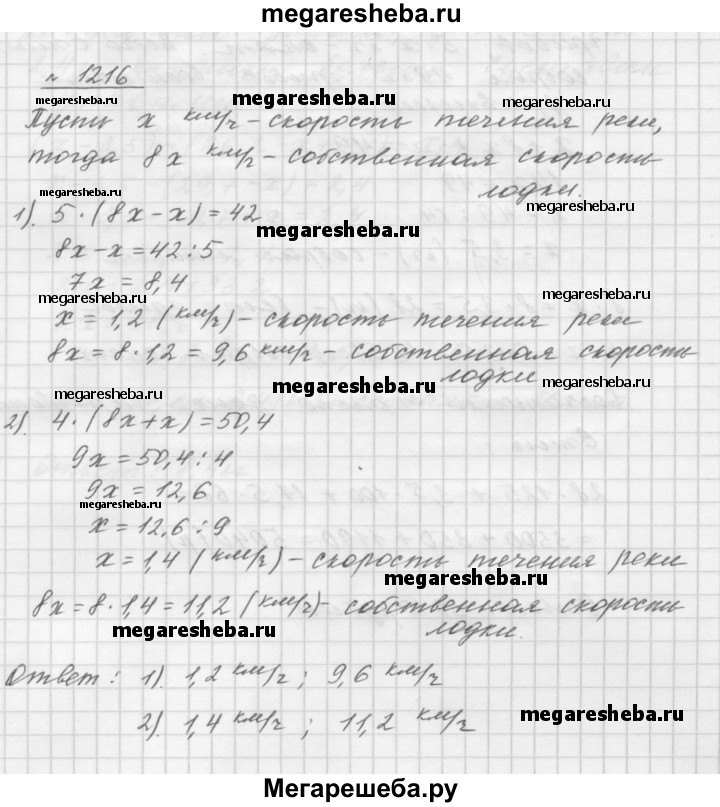 megaresheba.ru
№ 1216
megaresheba.ru megaresheba.ru megaresheba.ru
Пусть x км/ч - скорость течения реки,
тогда 8x км/ч - собственная скорость
megaresheba.ru лодки. megaresheba.ru
1). 5·(8x-x)=42 megaresheba.ru
8x-x=42:5
7x=8,4
megaresheba.ru megaresheba.ru
x=1,2 (км/ч) - скорость течения реки
8x=8·1,2=9,6 км/ч - собственная скорость
лодки
megaresheba.ru megaresheba.ru megaresheba.ru
2). 4·(8x+x)=50,4
9x=50,4:4
9x=12,6
x=12,6:9
x=1,4 (км/ч) - скорость течения реки
megaresheba.ru
8x=8·1,4=11,2 (км/ч) - собственная скорость
megaresheba.ru лодки.
Ответ: 1). 1,2 км/ч; 9,6 км/ч
2). 1,4 км/ч; 11,2 км/ч megaresheba.ru
Мегарешеба.ру